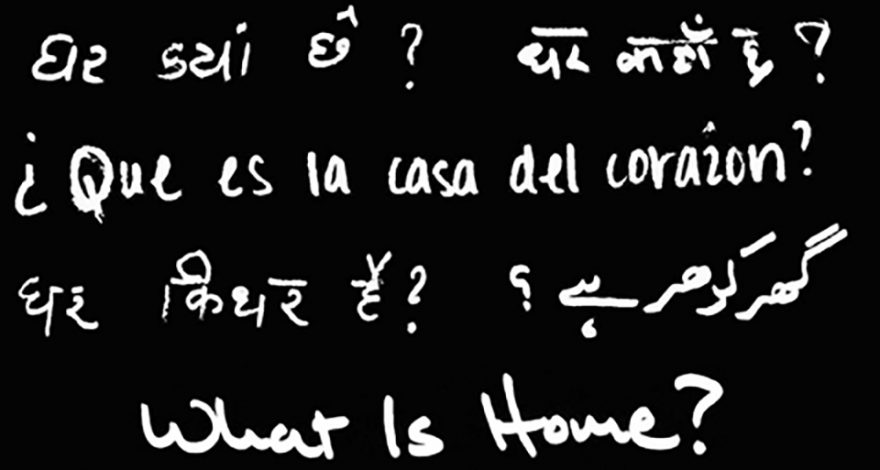 ઘર કયાં છે? घर कहाँ है?
¿Que es la casa del corazon?
घर किधर है? گھر کدھر ہے؟
What Is Home?